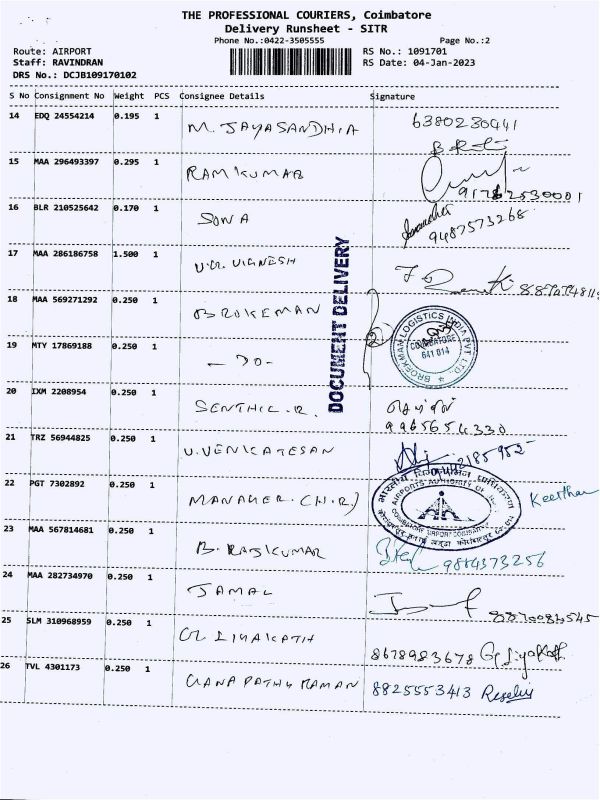 THE PROFESSIONAL COURIERS, Coimbatore
Delivery Runsheet - SITR
Phone No.:0422-3505555 Page No.:2
Route: AIRPORT RS No.: 1091701
Staff: RAVINDRAN RS Date: 04-Jan-2023
DRS No.: DCJB109170102
S No Consignment No Weight PCS Consignee Details Signature
14 EDQ 24554214 0.195 1 M. JAYASANDHIA 6380230441
15 MAA 296493397 0.295 1 RAMKUMAR
16 BLR 210525642 0.170 1 SONA 9487573268
17 MAA 286186758 1.500 1 VIGNESH
18 MAA 569271292 0.250 1 BROKEMAN
BROEKMAN LOGISTICS INDIA PVT LTD
COIMBATORE
641 014
DOCUMENT DELIVERY
19 MTY 17869188 0.250 1 - DO -
20 IXM 2208954 0.250 1 SENTHIL.R. 9965654330
21 TRZ 56944825 0.250 1 V.VENKATESAN
22 PGT 7302892 0.250 1 MANAGER (H.R) Keerthan
AIRPORTS AUTHORITY OF
23 MAA 567814681 0.250 1 B. RAJKUMAR 9814373256
24 MAA 282734970 0.250 1 JAMAL
25 SLM 310968959 0.250 1 8678983678
26 TVL 4301173 0.250 1 GANAPATHY RAMAN 8825553413